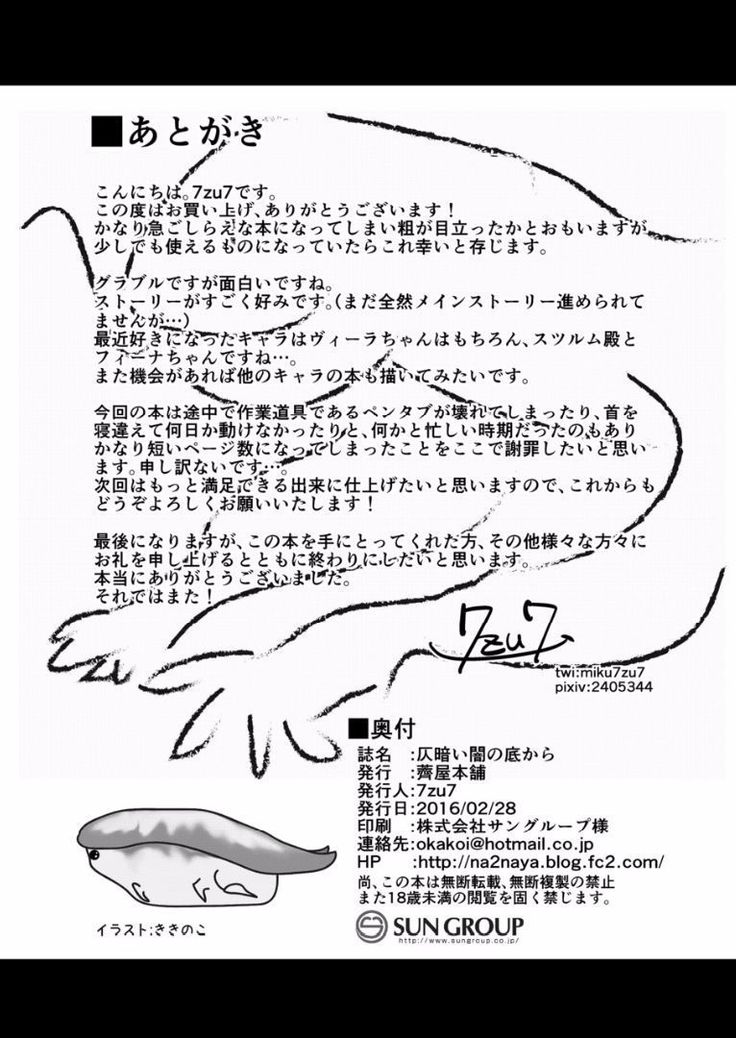 ■あとがき
こんにちは。7zu7です。
この度はお買い上げ、ありがとうございます！
かなり急ごしらえな本になってしまい粗が目立ったかとおもいますが
少しでも使えるものになっていたらこれ幸いと存じます。
グラブルですが面白いですね。
ストーリーがすごく好みです。(まだ全然メインストーリー進められて
ませんが…)
最近好きになったキャラはヴィーラちゃんはもちろん、スツルム殿と
フィーナちゃんですね…。
また機会があれば他のキャラの本も描いてみたいです。
今回の本は途中で作業道具であるペンタブが壊れてしまったり、首を
寝違えて何日か動けなかったりと、何かと忙しい時期だったのもあり
かなり短いページ数になってしまったことをここで謝罪したいと思い
ます。申し訳ないです…。
次回はもっと満足できる出来に仕上げたいと思いますので、これからも
どうぞよろしくお願いいたします！
最後になりますが、この本を手にとってくれた方、その他様々な方々に
お礼を申し上げるとともに終わりにしたいと思います。
本当にありがとうございました。
それではまた！
7zu7
twi:miku7zu7
pixiv:2405344
■奥付
誌名　:仄暗い闇の底から
発行　:薺屋本舗
発行人:7zu7
発行日:2016/02/28
印刷　:株式会社サングループ様
連絡先:okakoi@hotmail.co.jp
HP　:http://na2naya.blog.fc2.com/
尚、この本は無断転載、無断複製の禁止
また18歳未満の閲覧を固く禁じます。
SUN GROUP
http://www.sungroup.co.jp/
イラスト:ききのこ